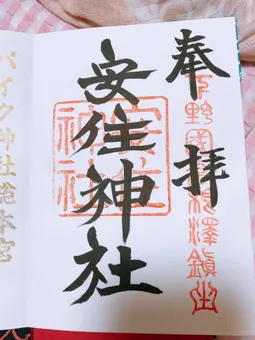 奉拝
下野國根澤鎮座
安住神社
安住神社
バイク神社総本宮